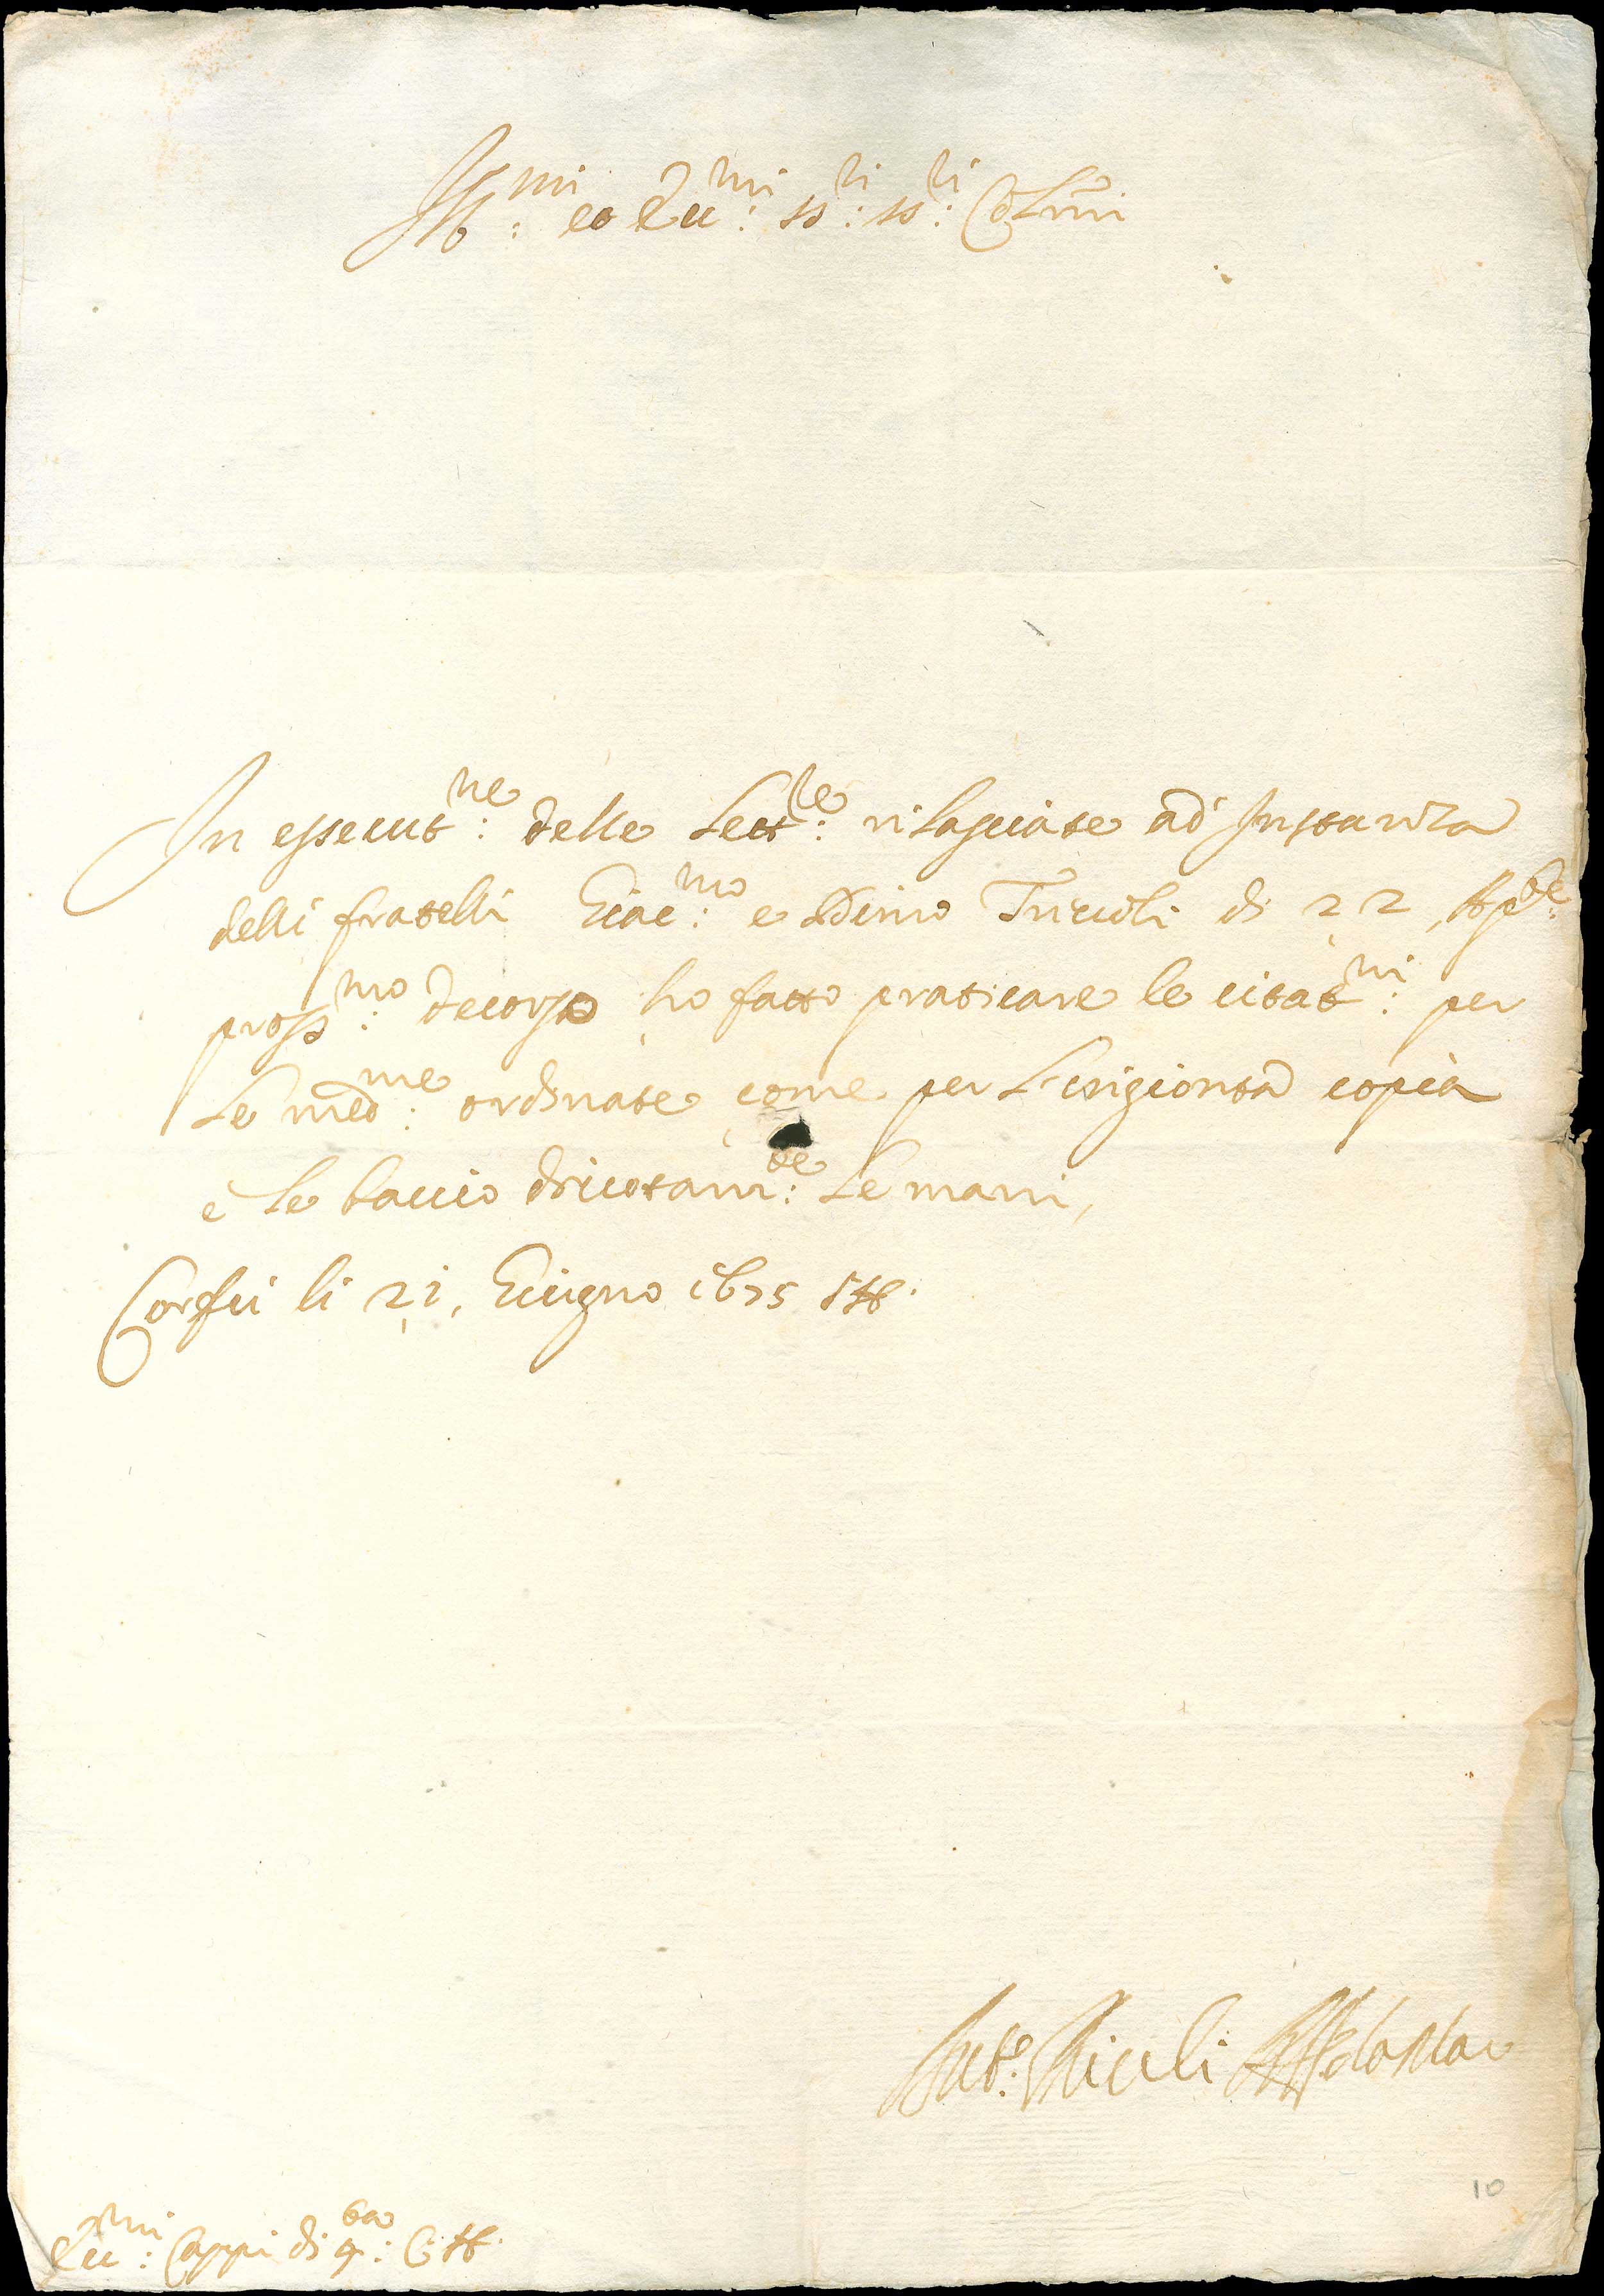 Ill.mi et Ecc:mi ss:ri ss:ri Col.mi
In essecut:ne delle Lett:re rilasciate ad Instanza
delli fratelli Giac:mo e Dimo Tricoli di 22, Ap.le
pross:mo decorso ho fatto praticare le citat:ni per
Le med:me ordinate come per L'ingionta copia
e le baccio divotam:te Le mani,
Corfù li 21, Giugno 1675 SN.
10
Ecc:mi Cappi di 40: C. N.